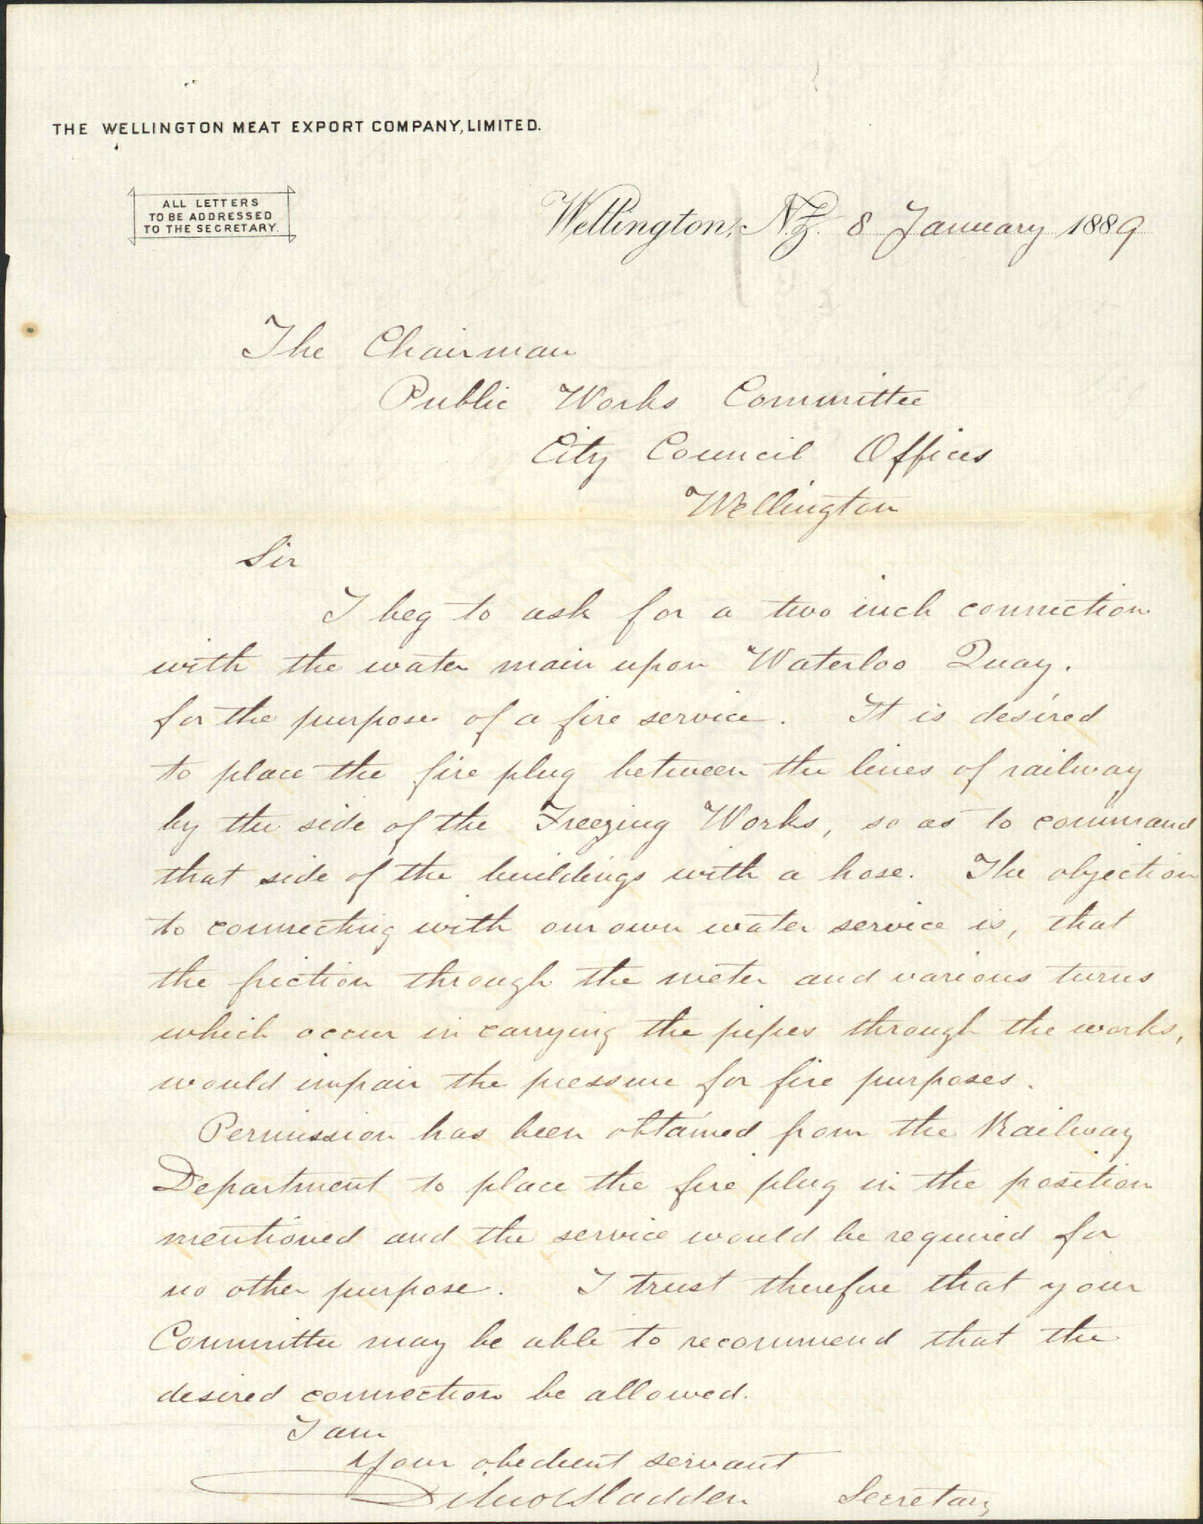 THE WELLINGTON MEAT EXPORT COMPANY, LIMITED.
ALL LETTERS
TO BE ADDRESSED
TO THE SECRETARY.
Wellington, N.Z. 8 January 1889
The Chairman
Public Works Committee
City Council Offices
Wellington
Sir
I beg to ask for a two inch connection
with the water main upon Waterloo Quay.
for the purpose of a fire service. It is desired
to place the fire plug between the lines of railway
by the side of the Freezing Works, so as to command
that side of the buildings with a hose. The objection
to connecting with our own water service is, that
the friction through the meter and various turns
which occur in carrying the pipes through the works,
would impair the pressure for fire purposes.
Permission has been obtained from the Railway
Department to place the fire plug in the position
mentioned and the service would be required for
no other purpose. I trust therefore that your
Committee may be able to recommend that the
desired connection be allowed.
I am
Your obedient servant
Sladden Secretary